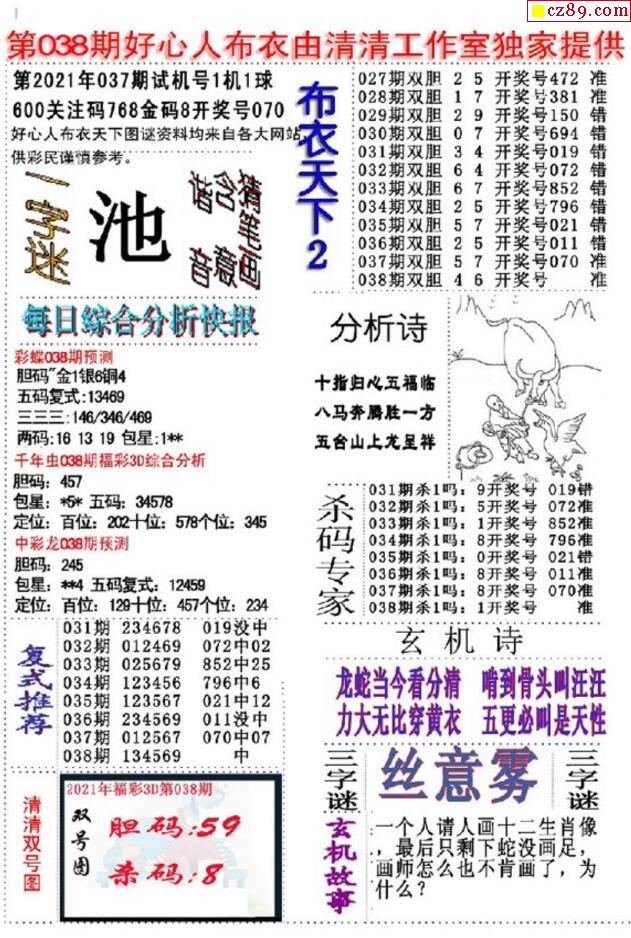 cz89.com
第038期好心人布衣由清清工作室独家提供
第2021年037期试机号1机1球
600关注码768金码8开奖号070
好心人布衣天下图谜资料均来自各大网站，
供彩民谨慎参考。
一字迷
池
猜笔画
含意
谐音
布衣天下2
027期双胆 2 5 开奖号472 准
028期双胆 1 7 开奖号381 准
029期双胆 2 9 开奖号150 错
030期双胆 0 7 开奖号694 错
031期双胆 3 4 开奖号019 错
032期双胆 6 4 开奖号072 错
033期双胆 6 7 开奖号852 错
034期双胆 2 5 开奖号796 错
035期双胆 5 7 开奖号021 错
036期双胆 2 5 开奖号011 错
037期双胆 5 7 开奖号070 准
038期双胆 4 6 开奖号 准
每日综合分析快报
彩蝶038期预测
胆码"金1银6铜4
五码复式:13469
三三三:146/346/469
两码:16 13 19 包星:1**
千年虫038期福彩3D综合分析
胆码：457
包星：*5* 五码：34578
定位：百位：202十位：578个位：345
中彩龙038期预测
胆码：245
包星：**4 五码复式：12459
定位：百位：129十位：457个位：234
分析诗
十指归心五福临
八马奔腾胜一方
五台山上龙呈祥
杀码专家
031期杀1吗：9开奖号 019错
032期杀1吗：5开奖号 072准
033期杀1吗：1开奖号 852准
034期杀1吗：8开奖号 796准
035期杀1吗：0开奖号 021错
036期杀1吗：8开奖号 011准
037期杀1吗：8开奖号 070准
038期杀1吗：1开奖号 准
复式推荐
031期 234678 019没中
032期 012469 072中02
033期 025679 852中25
034期 123456 796中6
035期 123567 021中12
036期 234569 011没中
037期 012567 070中07
038期 134569 中
玄机诗
龙蛇当今看分清 啃到骨头叫汪汪
力大无比穿黄衣 五更必叫是天性
三字谜
丝意雾
三字谜
清清双号图
2021年福彩3D第038期
双号图
胆码:59
杀码:8
玄机故事
一个人请人画十二生肖像
，最后只剩下蛇没画足，
画师怎么也不肯画了，为
什么？